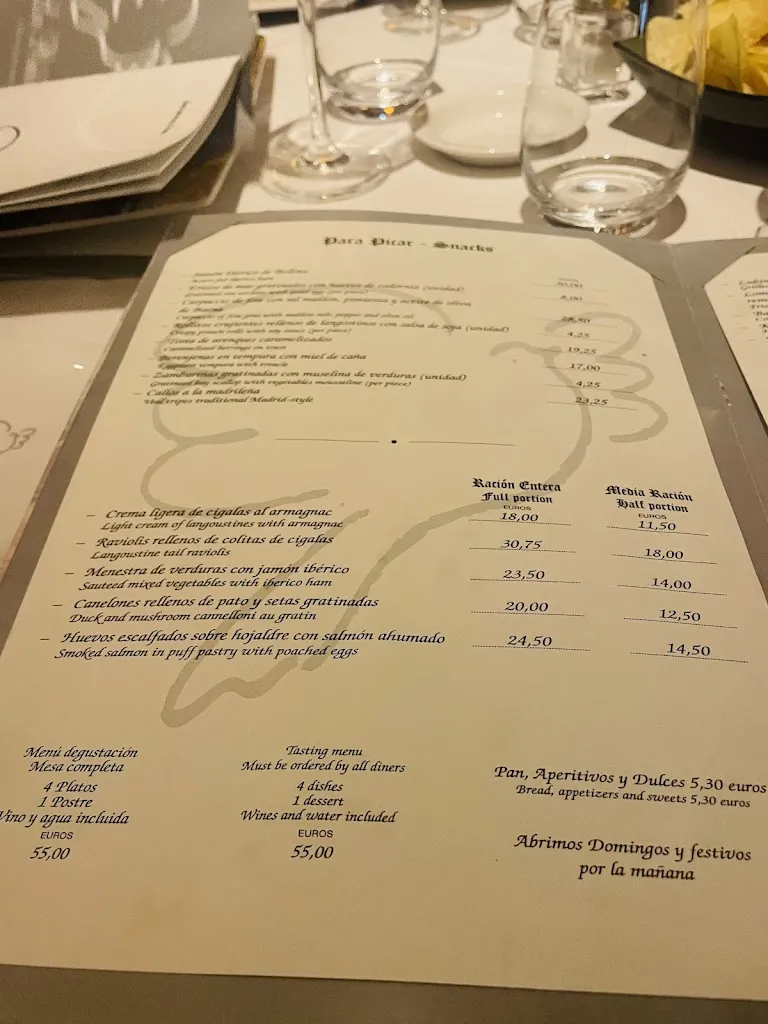 Para Picar - Snacks
Jamón Ibérico de Bellota
Erizos de mar gratinados con huevos de codorniz (unidad)
8,00
Carpaccio de foie con sal maldon, pimienta y aceite de oliva
Carpaccio of foie gras with maldon salt, pepper and olive oil
28,50
Rollitos crujientes rellenos de langostinos con salsa de soja (unidad)
Crispy prawn rolls with soy sauce (per piece)
4,25
Tosta de arenques caramelizados
Caramelised herrings on toast
19,25
Berenjenas en tempura con miel de caña
Eggplant tempura with treacle
17,00
Zamburiñas gratinadas con muselina de verduras (unidad)
Gratinated bay scallop with vegetables mousseline (per piece)
4,25
Callos a la madrileña
Veal tripes traditional Madrid-style
23,25
Ración Entera Media Ración
Full portion Half portion
EUROS EUROS
– Crema ligera de cigalas al armagnac 18,00 11,50
Light cream of langoustines with armagnac
– Raviolis rellenos de colitas de cigalas 30,75 18,00
Langoustine tail raviolis
– Menestra de verduras con jamón ibérico 23,50 14,00
Sauteed mixed vegetables with iberico ham
– Canelones rellenos de pato y setas gratinadas 20,00 12,50
Duck and mushroom cannelloni au gratin
– Huevos escalfados sobre hojaldre con salmón ahumado 24,50 14,50
Smoked salmon in puff pastry with poached eggs
Menú degustación
Mesa completa
4 Platos
1 Postre
Vino y agua incluida
EUROS
55,00
Tasting menu
Must be ordered by all diners
4 dishes
1 dessert
Wines and water included
EUROS
55,00
Pan, Aperitivos y Dulces 5,30 euros
Bread, appetizers and sweets 5,30 euros
Abrimos Domingos y festivos
por la mañana